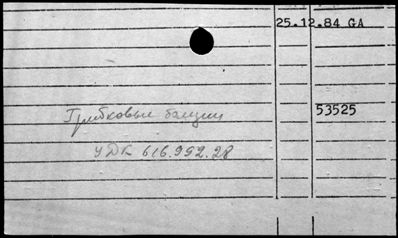 25.12.84 GA
53525
Грибковые
УДК 616.992.28